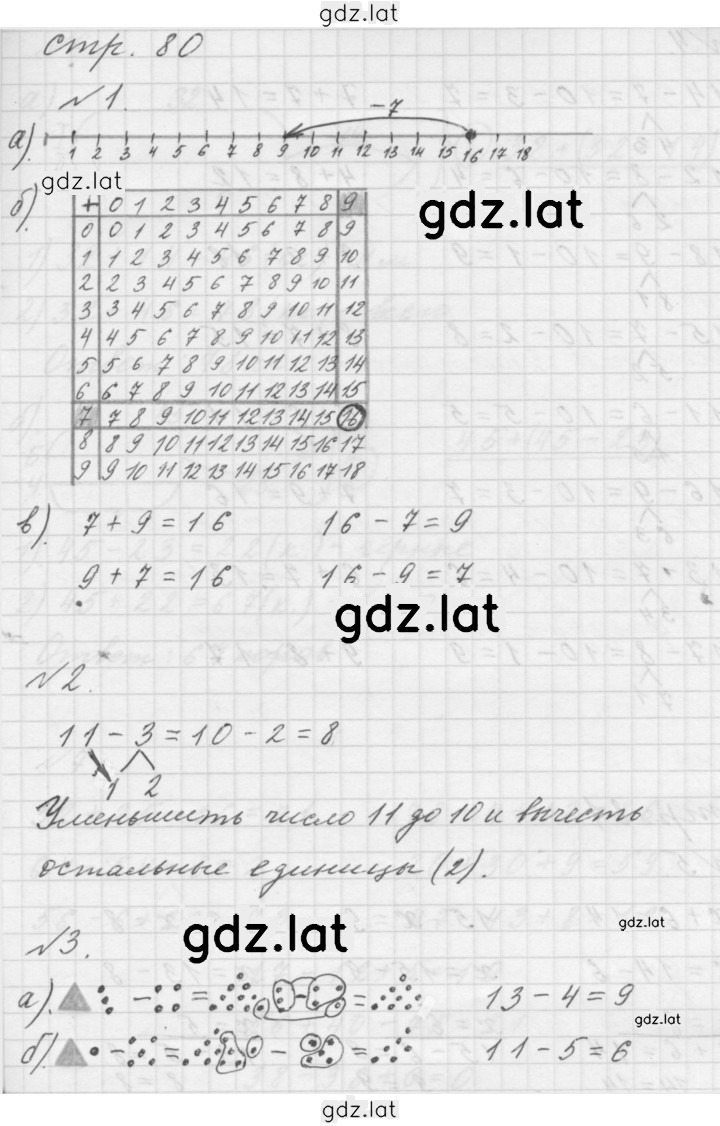 gdz.lat
стр. 80
№1.
а). 1 2 3 4 5 6 7 8 9 10 11 12 13 14 15 16 17 18 -7
gdz.lat
б). + 0 1 2 3 4 5 6 7 8 9
gdz.lat
0 0 1 2 3 4 5 6 7 8 9
1 1 2 3 4 5 6 7 8 9 10
2 2 3 4 5 6 7 8 9 10 11
3 3 4 5 6 7 8 9 10 11 12
4 4 5 6 7 8 9 10 11 12 13
5 5 6 7 8 9 10 11 12 13 14
6 6 7 8 9 10 11 12 13 14 15
7 7 8 9 10 11 12 13 14 15 16
8 8 9 10 11 12 13 14 15 16 17
9 9 10 11 12 13 14 15 16 17 18
в). 7 + 9 = 16 16 - 7 = 9
9 + 7 = 16 16 - 9 = 7
gdz.lat
№2.
11 - 3 = 10 - 2 = 8
1 2
Уменьшить число 11 до 10 и вычесть
остальные единицы (2).
gdz.lat
gdz.lat
№3.
а). - = - = 13 - 4 = 9
gdz.lat
б). - = - = 11 - 5 = 6
gdz.lat